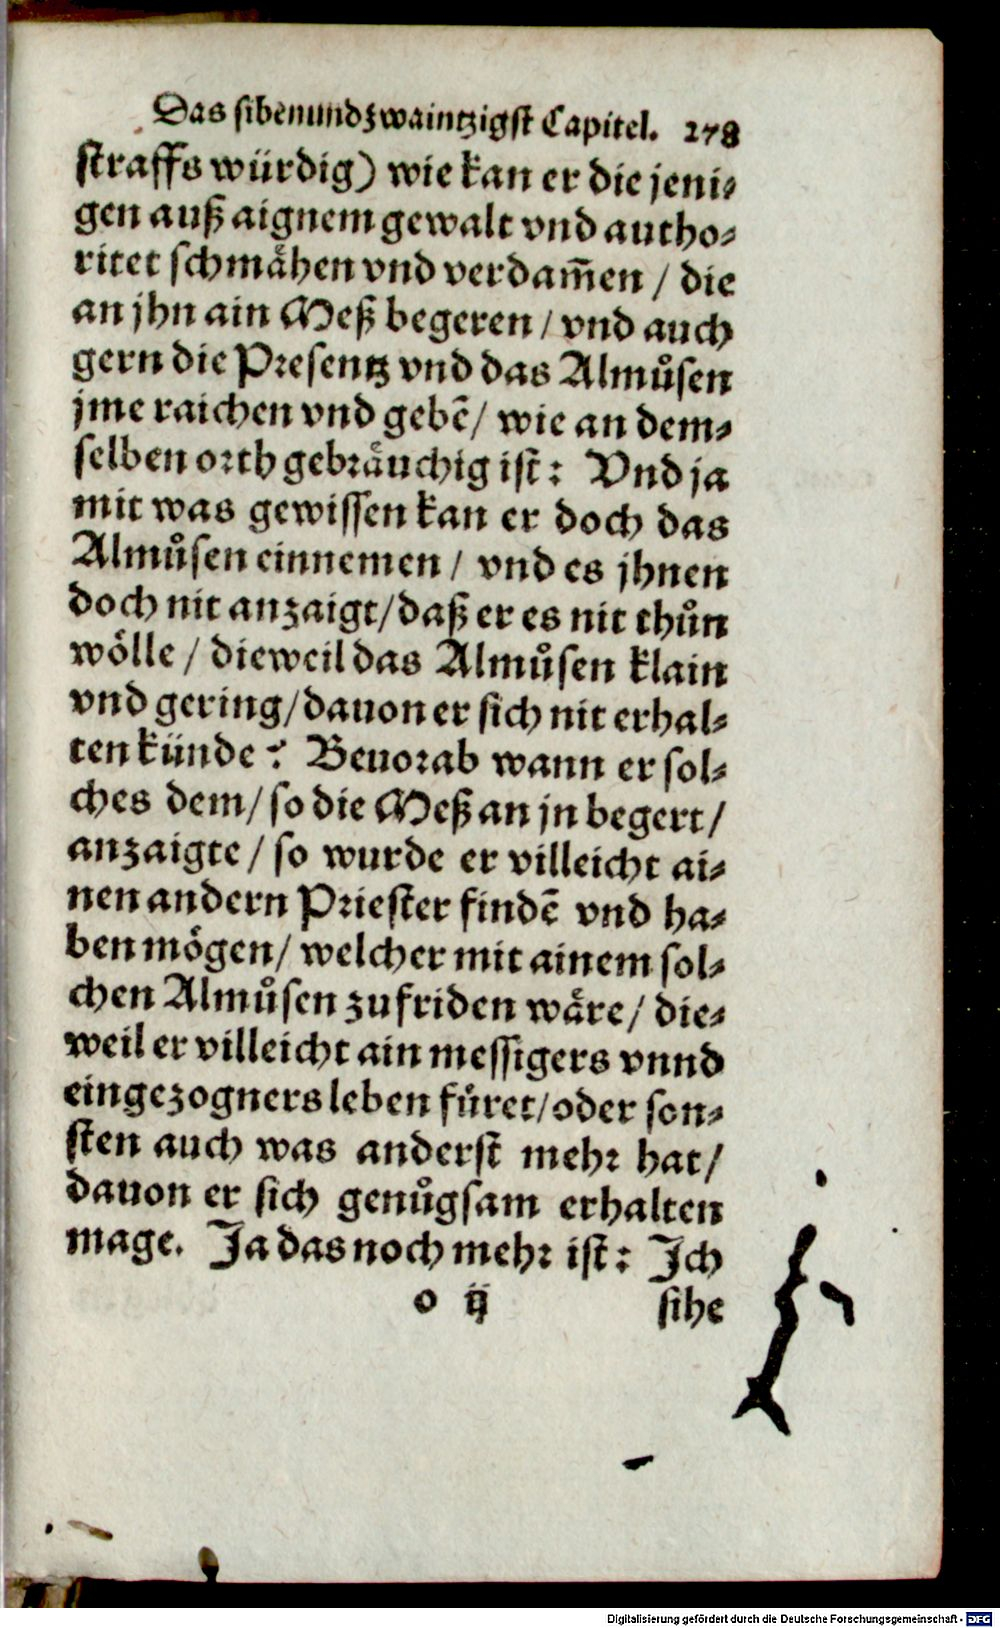 Das sibenundzwaintzigst Capitel. 278
straffs würdig) wie kan er die jeni⸗
gen auß aignem gewalt vnd autho⸗
ritet schmähen vnd verdam̃en / die
an jhn ain Meß begeren / vnd auch
gern die Presentz vnd das Almůsen
jme raichen vnd gebẽ / wie an dem⸗
selben orth gebräuchig ist: Vnd ja
mit was gewissen kan er doch das
Almůsen einnemen / vnd es jhnen
doch nit anzaigt / daß er es nit thůn
wölle / dieweil das Almůsen klain
vnd gering / dauon er sich nit erhal⸗
ten künde? Beuorab wann er sol⸗
ches dem / so die Meß an jn begert /
anzaigte / so wurde er villeicht ai⸗
nen andern Priester findẽ vnd ha⸗
ben mögen / welcher mit ainem sol⸗
chen Almůsen zufriden wäre / die⸗
weil er villeicht ain messigers vnnd
eingezogners leben füret / oder son⸗
sten auch was anderst mehr hat /
dauon er sich genůgsam erhalten
mage. Ja das noch mehr ist: Jch
o ij sihe
Digitalisierung gefördert durch die Deutsche Forschungsgemeinschaft - DFG